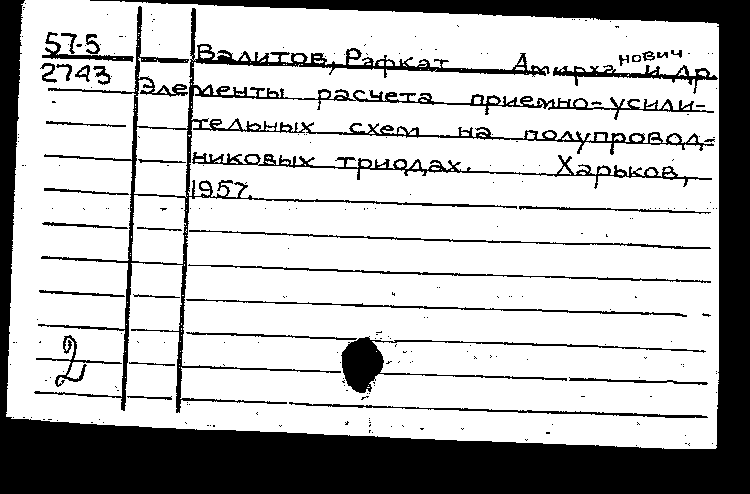 57-5
2743
Валитов, Рафкат Амирханович и др.
Элементы расчета приемно-усили-
тельных схем на полупровод-
никовых триодах. Харьков,
1957.
2